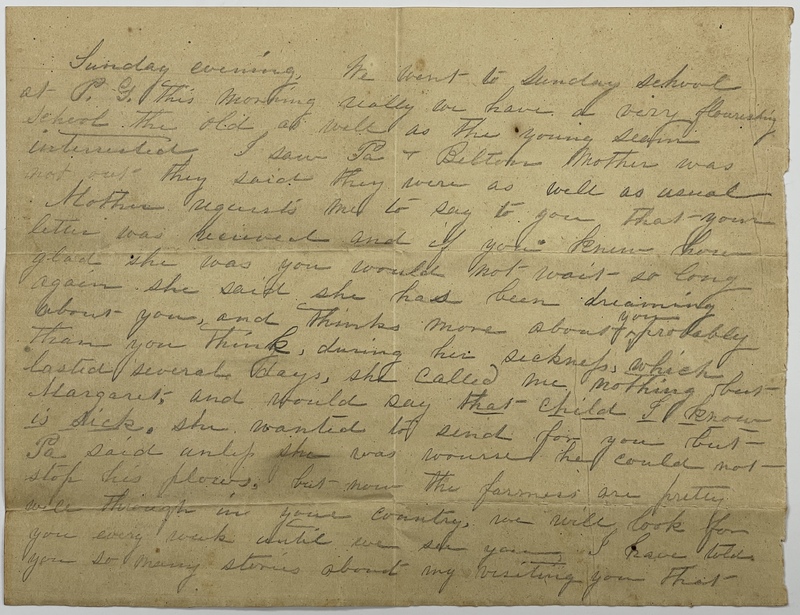 Sunday evening, We went to Sunday school
at P. G. this morning really we have a very flourishing
school the old as well as the young seem
interested, I saw Pa & Belton Mother was
not out they said they were as well as usual
Mother requests me to say to you that your
letter was received and if you knew how
glad she was you would not wait so long
again she said she has been dreaming
about you, and thinks more about you probably
than you think, during her sickness, which
lasted several days, she called me nothing but
Margaret, and would say that child I know
is sick, she wanted to send for you but
Pa said unless she was wourse he could not
stop his plows, but now the farmers are pretty
well through in your country, we will look for
you every week until we see you, I have told
you so many stories about my visiting you that